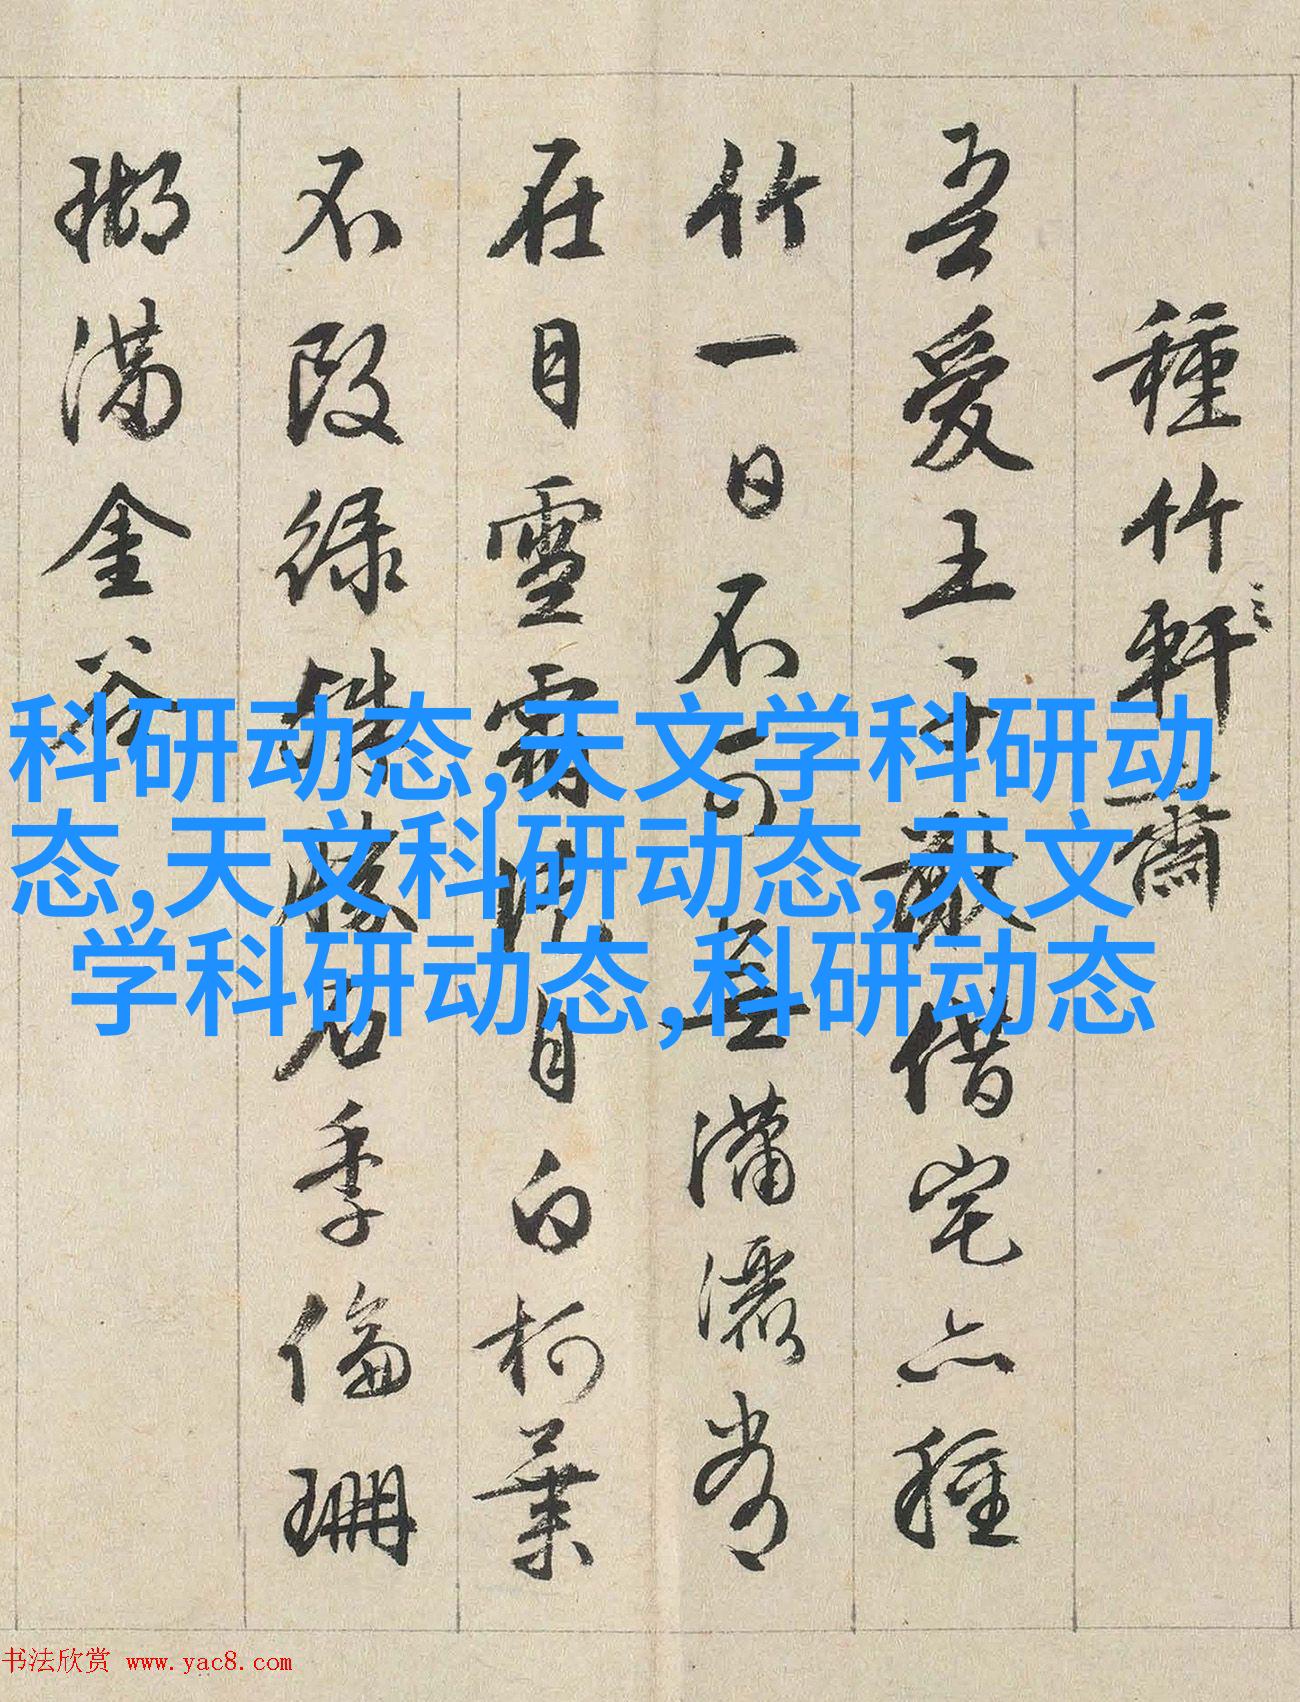 種竹軒
吾愛王子猷借宅亦種
竹一日不可無瀟灑常
在目雪霜徒自白柯葉
不改綠殊勝石季倫珊
瑚滿金谷
科研动态,天文学科研动
态,天文科研动态,天文
学科研动态,科研动态
书法欣赏 www.yac8.com